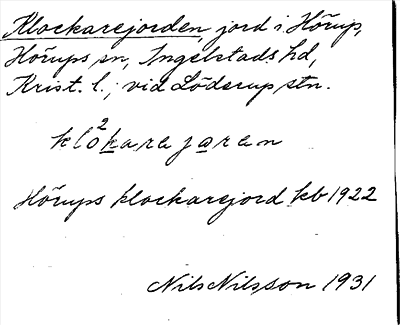 Klockarejorden, jord i Hörup,
Hörups sn, Ingelstads hd,
Krist. l.; vid Löderup stn.
klo²karejaren
Hörups klockarejord kb 1922
Nils Nilsson 1931